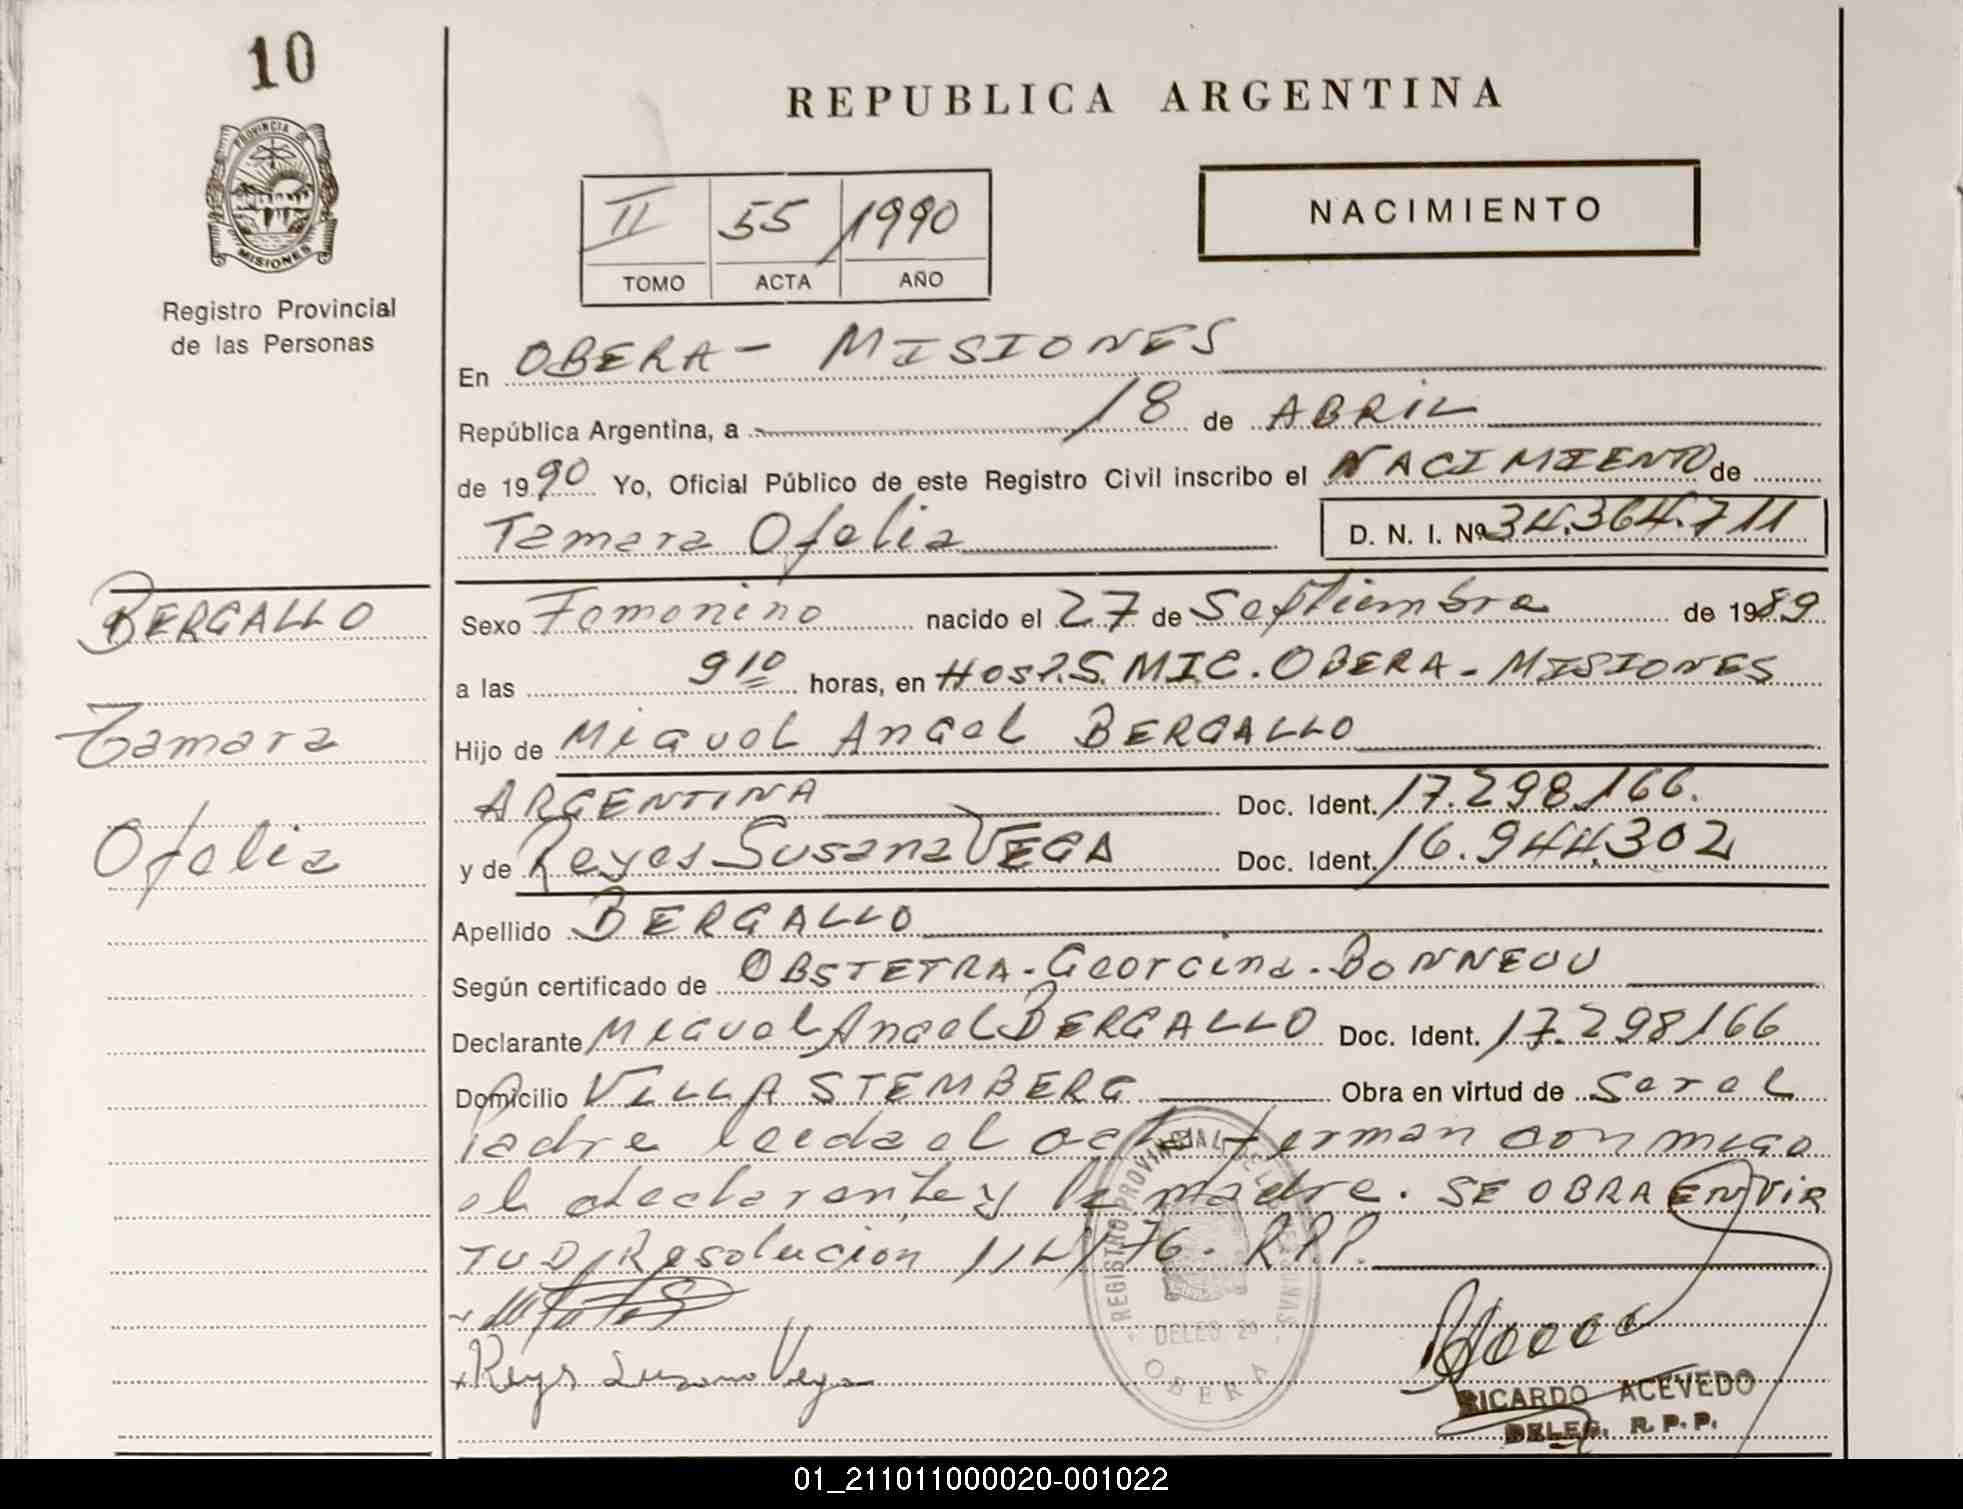 10
PROVINCIA DE
MISIONES
Registro Provincial
de las Personas
REPUBLICA ARGENTINA
II 55 1990
TOMO ACTA AÑO
NACIMIENTO
En OBERA - MISIONES
República Argentina, a 18 de ABRIL
de 1990 Yo, Oficial Público de este Registro Civil inscribo el NACIMIENTO de
Tamara Ofelia D. N. I. Nº 34.364.711
BERGALLO
Tamara
Ofelia
Sexo Femenino nacido el 27 de Septiembre de 1989
a las 9 10 horas, en HOSP. S. MIC. OBERA - MISIONES
Hijo de Miguel Angel BERGALLO
ARGENTINA Doc. Ident. 17.298.166.
y de Reyes Susana VEGA Doc. Ident. 16.944.302
Apellido BERGALLO
Según certificado de OBSTETRA - Georgina - BONNEOU
Declarante Miguel Angel BERGALLO Doc. Ident. 17.298166
Domicilio VILLA STEMBERG Obra en virtud de Ser el
Padre leida el acta firman conmigo
el declarante y la madre. SE OBRA EN VIR
TUD Resolucion 114/76. R.P.P.
Reyes Susana Vega
REGISTRO PROVINCIAL DE LAS PERSONAS
DELEG 20
OBERA
RICARDO ACEVEDO
DELEG. R. P. P.
01_211011000020-001022